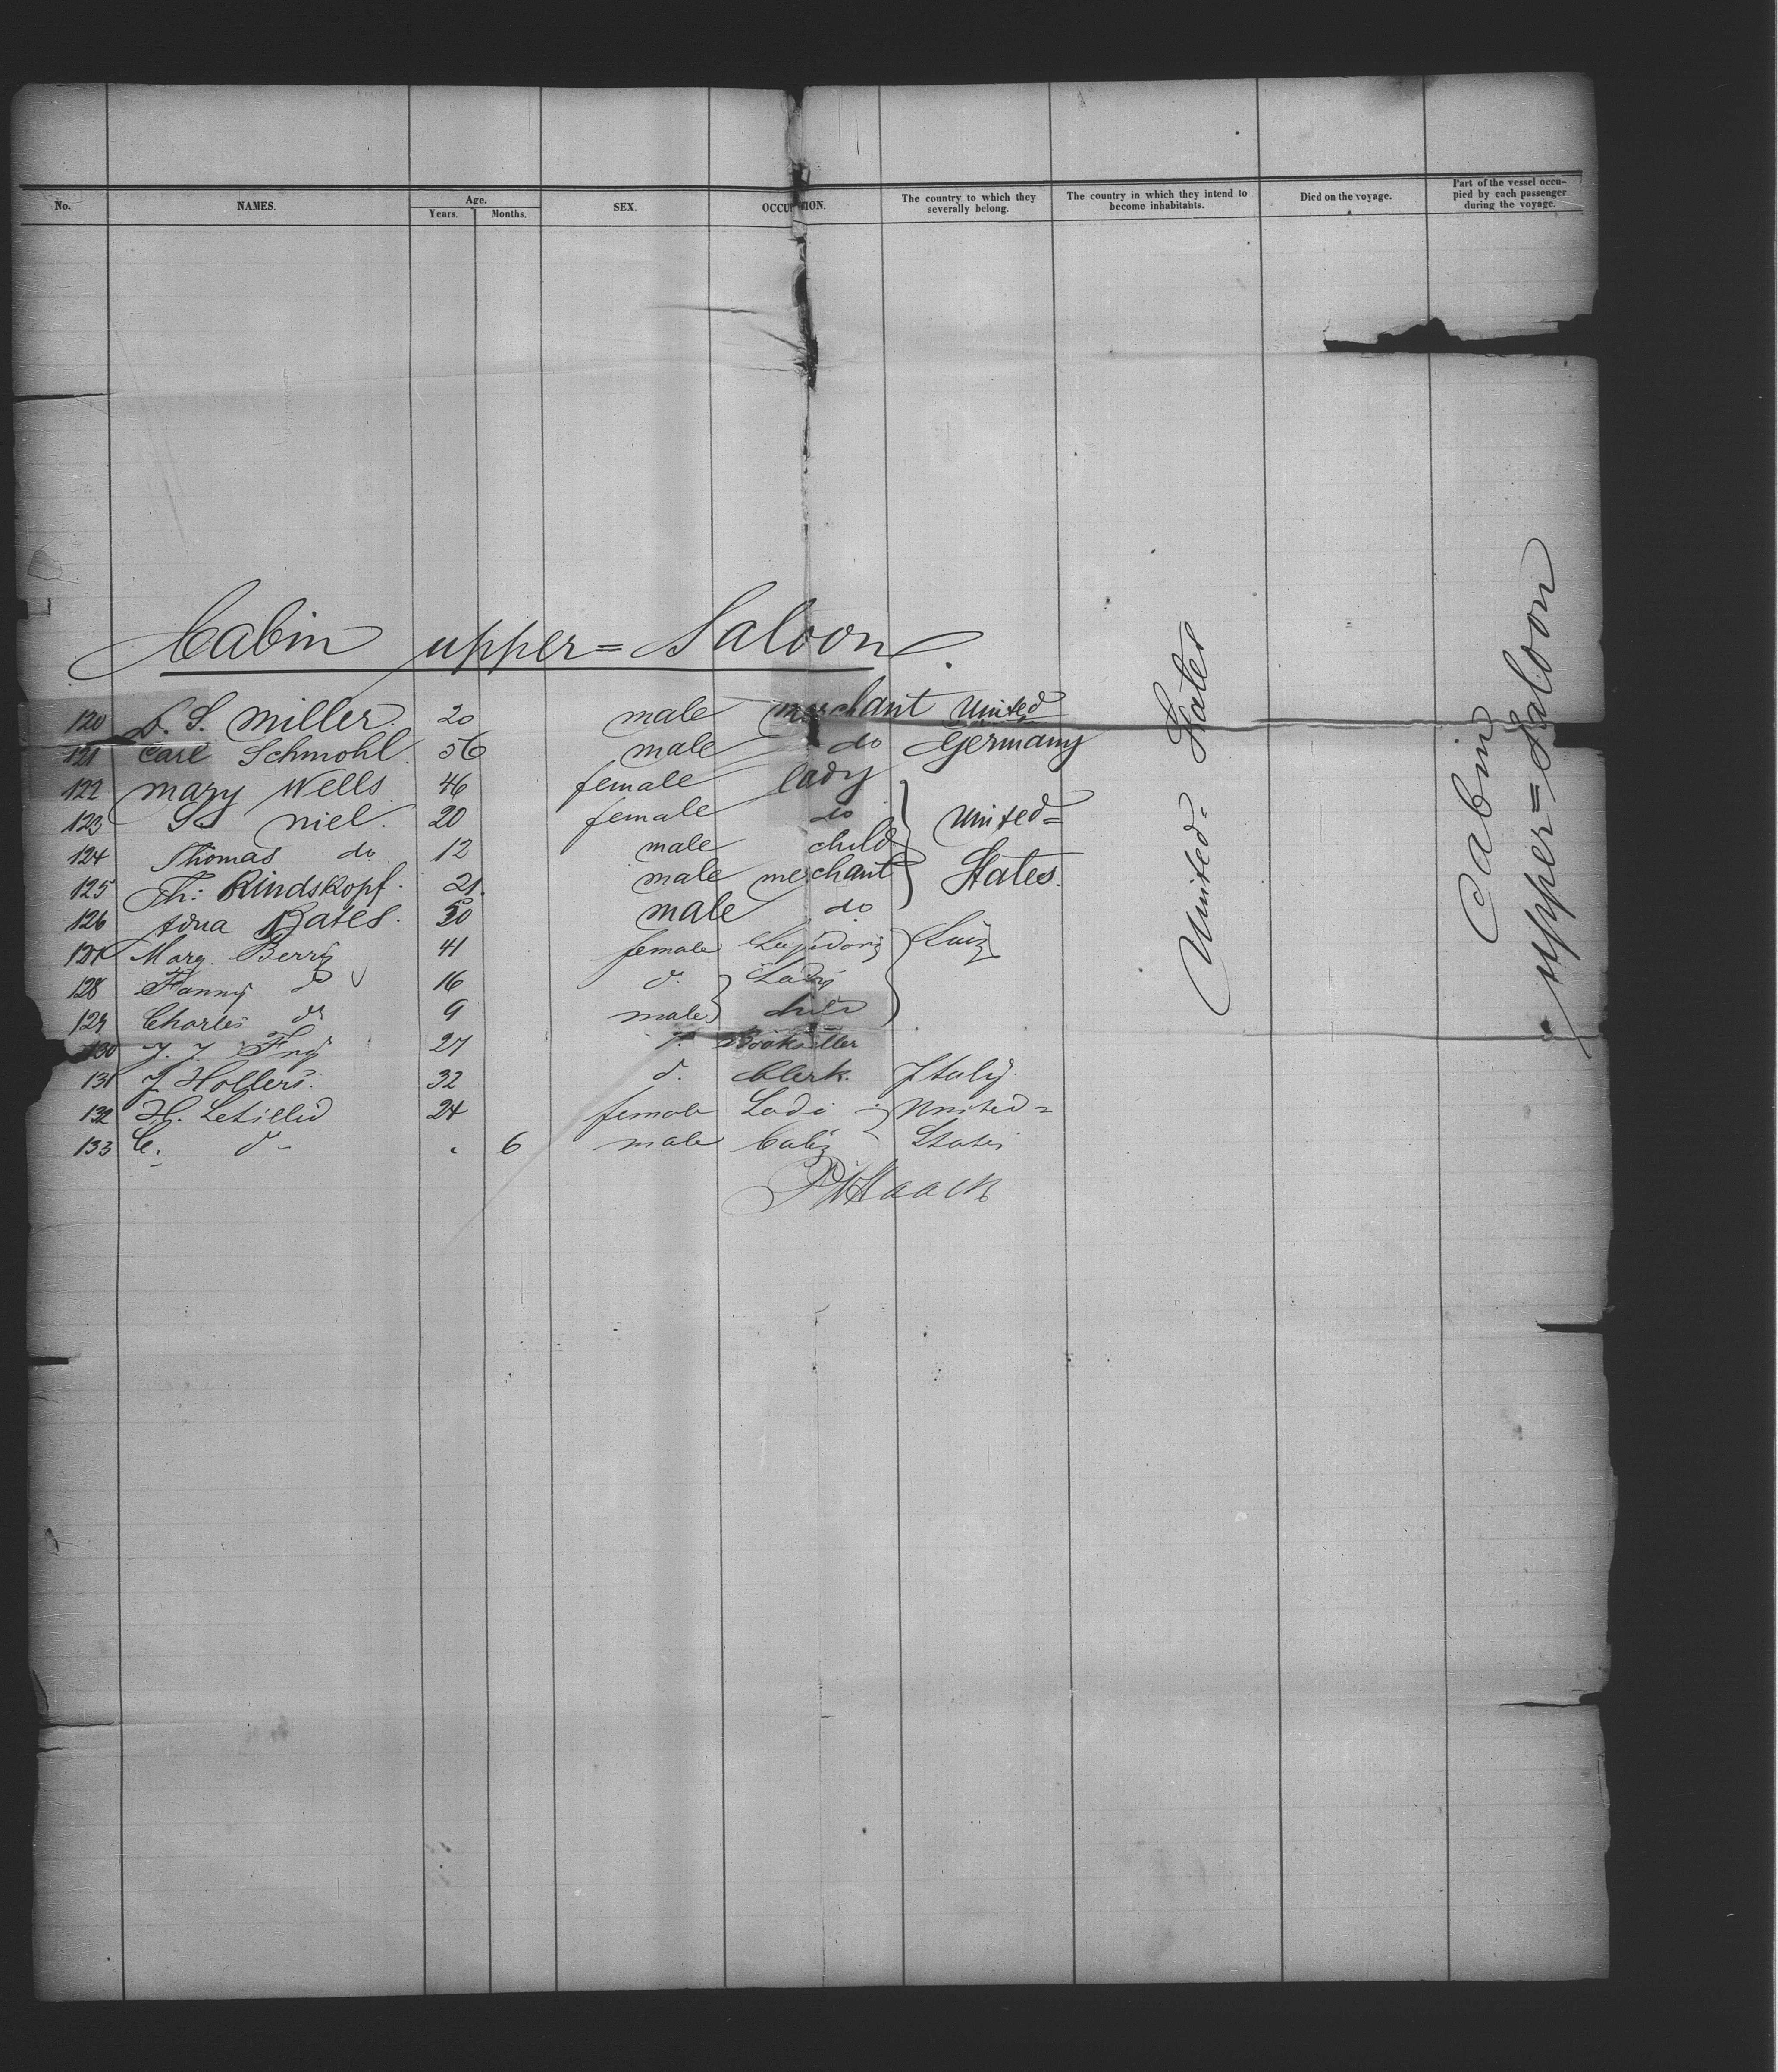 No. NAMES. Age. Years. Months. SEX. OCCUPATION. The country to which they severally belong. The country in which they intend to become inhabitants. Died on the voyage. Part of the vessel occupied by each passenger during the voyage.
Cabin upper=Saloon.
120 S. Miller. 20 male merchant United
121 Carl Schmohl. 56 male do Germany
122 Mary Wells 46 female lady
123 niel. 20 female do United=
124 Thomas do 12 male child
125 Th: Rindskopf. 21. male merchant States.
126 Bates. 50 male do
127 Marg. Berry 41 female
128 Fanny do 16 d. Lady
129 Charles do 9 male child
130 J. J. 27 d. Bookseller
131 J. Hollers. 32 d. Clerk. Italy.
132 H. 24 female Ladi United=
133 C. d- . 6 male baby States
United=States
Cabin
upper=Saloon